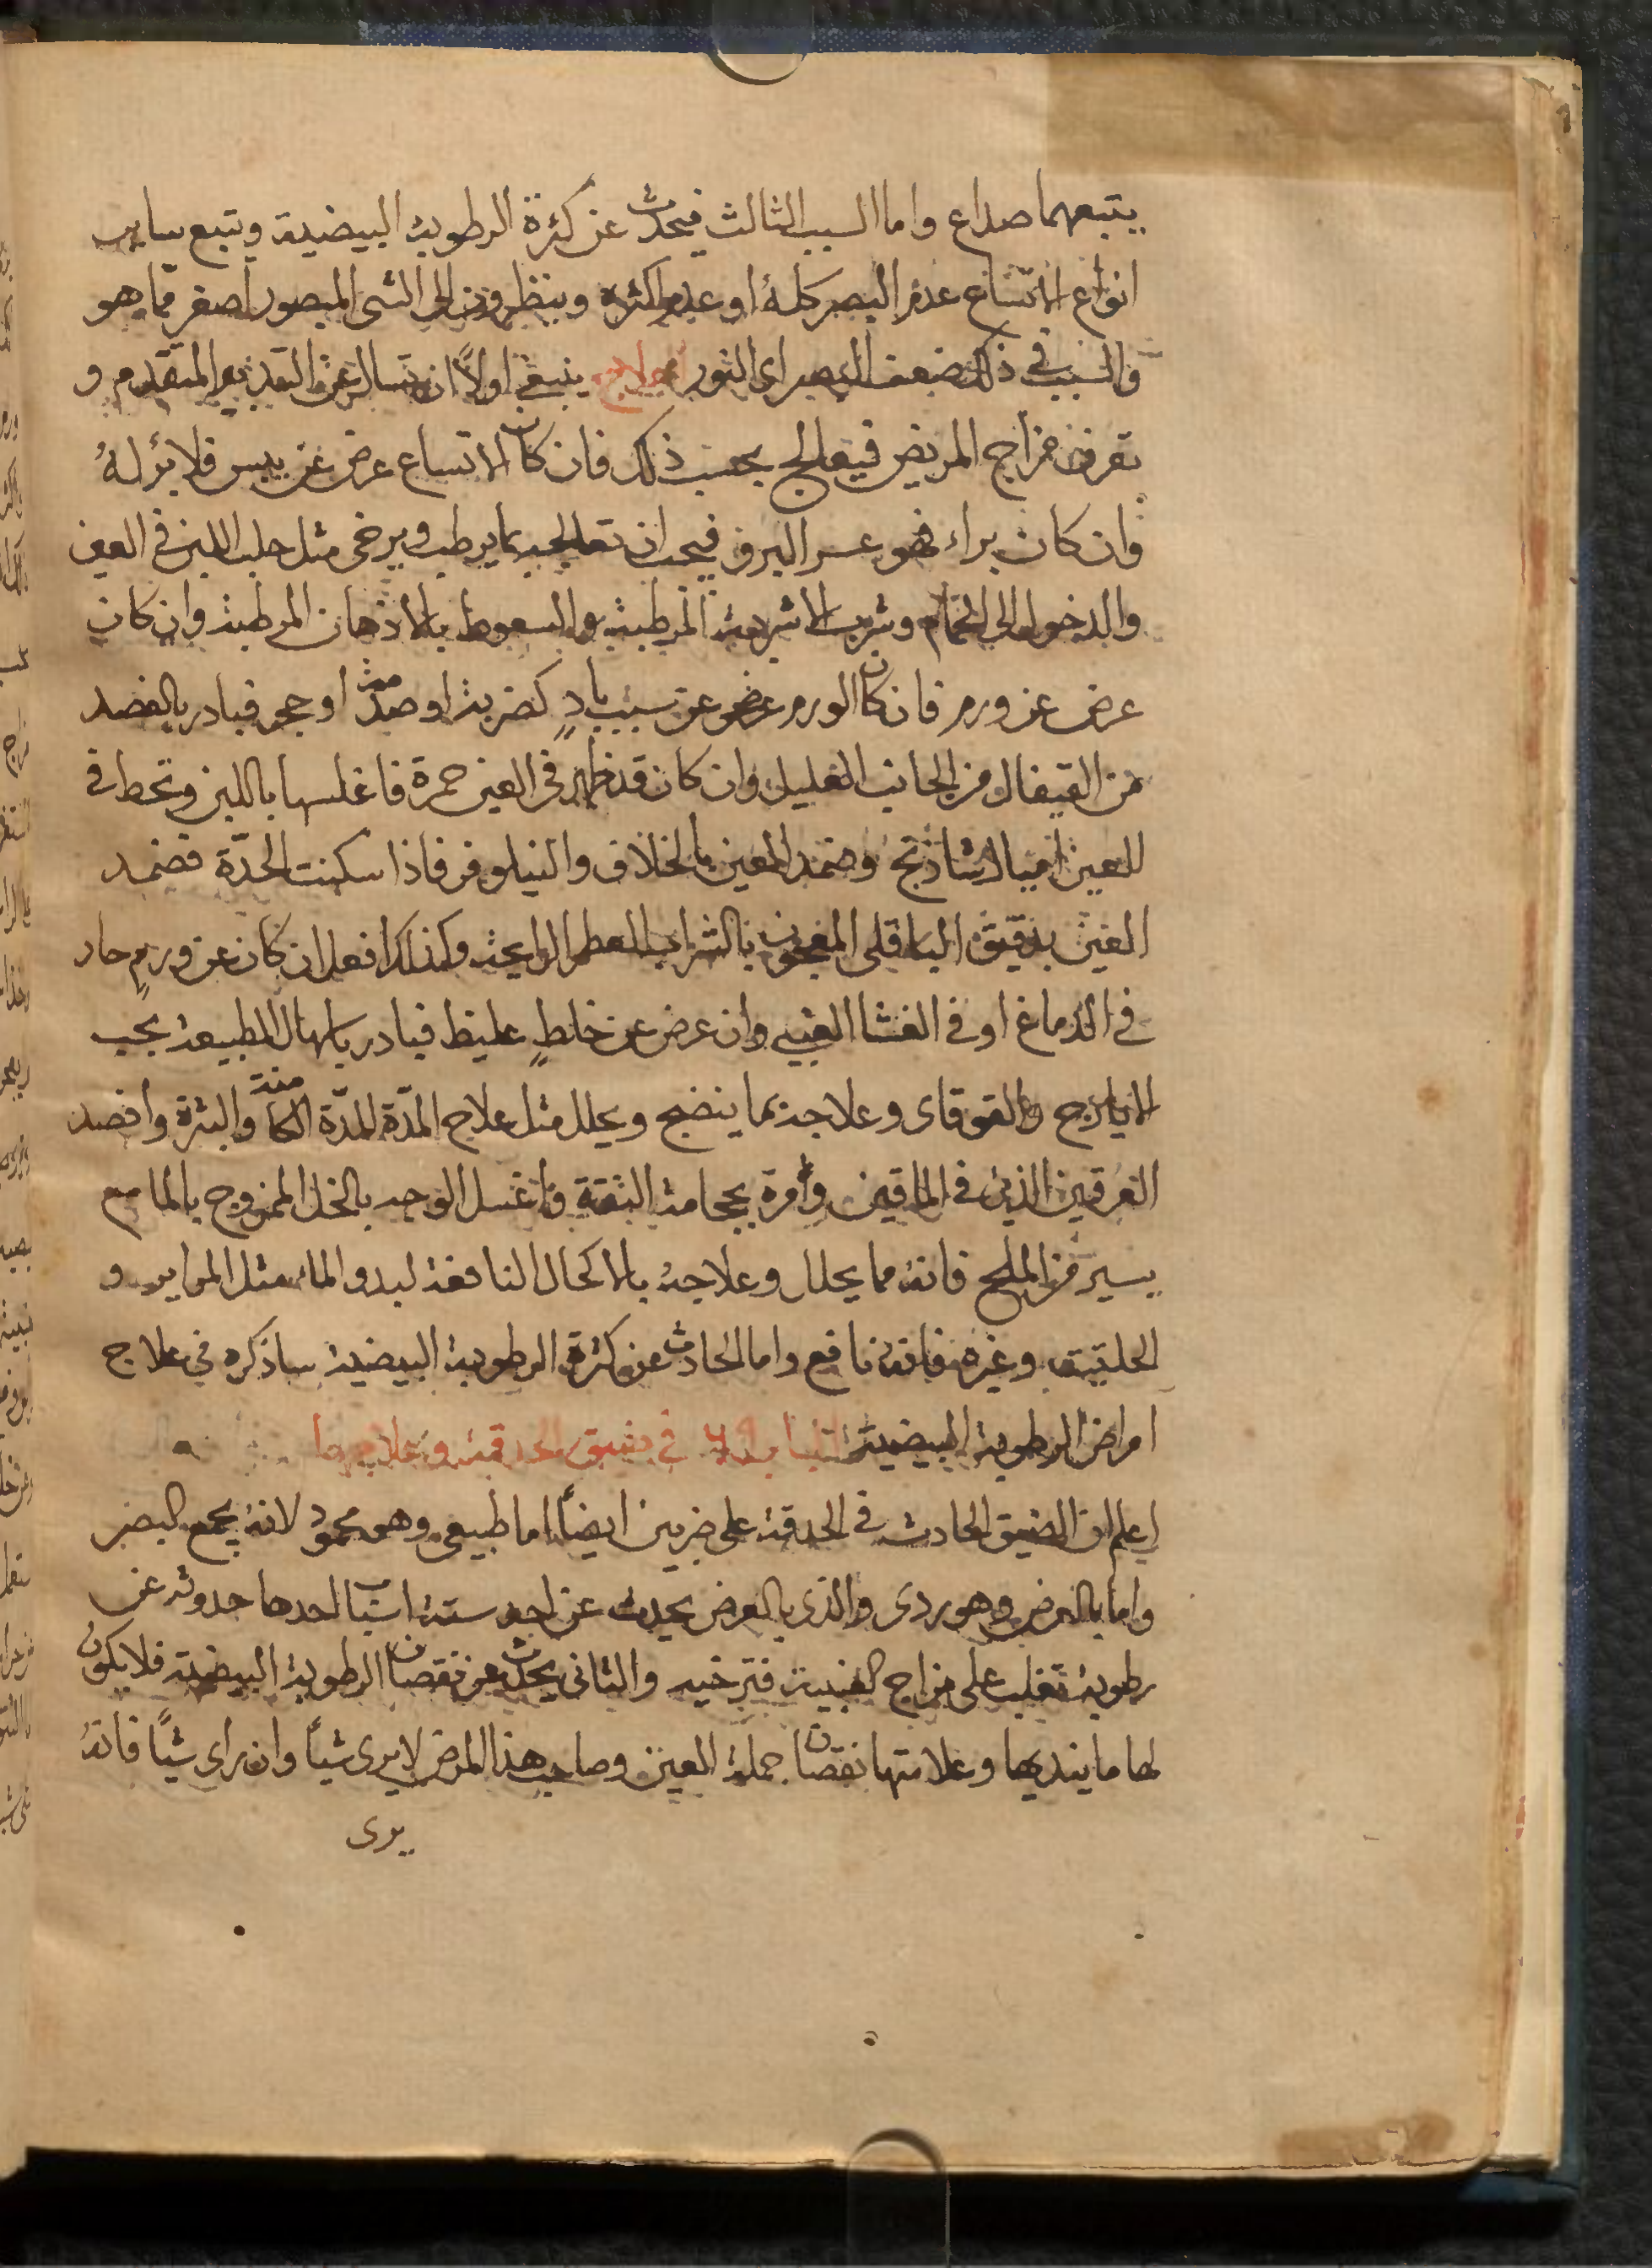 يتبعهما صداع واما السبب الثالث فيحدث عن كثرة الرطوبة البيضية ويتبع ساير
انواع الاتساع عدم البصر كلهُ او عدم اكثره وينظرون الى الشى المبصور اصغر مما هو
والسبب في ذلك ضعف البصر اى النور علاج ينبغي اولاً ان تسال عن التدبير المتقدم و
تعرف مزاج المريض فيعالج بحسب ذلك فان كان الاتساع عرض عن يبس فلا برُ لهُ
وان كان براء فهو عسر البرو فيجب ان تعالجه بما يرطب ويرخى مثل حلب اللبن في العين
والدخول الى الحمام وشرب الاشربة المرطبة والسعوط بالادهان المرطبة وان كان
عرض عن ورم فان كان الورم عرض عن سبب بادٍ كضربة او صدمة او حجر فبادر بالفصد
من القيفال من الجانب العليل وان كان قد ظهر في العين حمرة فاغلسها باللبن وتحط في
العين اميال شاذنج وضمد العين بالخلاف والنيلوفر فاذا سكنت الحدّة فضمد
العين بدقيق الباقلى المعجون بالشراب العطر الرايحة وكذلك افعل ان كان عن ورمٍ حار
في الدماغ او في الغشا العنبي وان عرض عن خلطٍ غليظ فبادر باسهال الطبيعة بحب
الايارج والقوقاى وعلاجه بما ينضج ويحلل مثل علاج المدّة المدّة الكامنة والبثرة وافصد
العرقين الذين في الماقين وأمره بحجامة النقرة واغسل الوجه بالخل الممزوج بالما مع
يسير من الملح فانهُ مما يحلل وعلاجهُ بالاكحال النافعة لبدو الماء مثل المراير و
الحلتيت وغيره فانهُ نافع واما الحادث عن كثرة الرطوبة البيضية ساذكره في علاج
امراض الرطوبة البيضية الباب في ضيق الحدقة وعلاجها
اعلم ان الضيق الحادث في الحدقة على ضربين ايضاً اما طبيعي وهو محمود لانهُ يجمع البصر
واما بالعرض وهو ردى والذى بالعرض يحدث عن احد ستة اسباب احدها حدوثه عن
رطوبة تغلب على مزاج العنبية فترخيه والثانى يحدث عن نقصان الرطوبة البيضية فلا يكون
لها ما يندبها وعلامتها نقصان جملة العين وصاحب هذا المرض لا يرى شيأً وان راى شيأً فانهُ
يرى